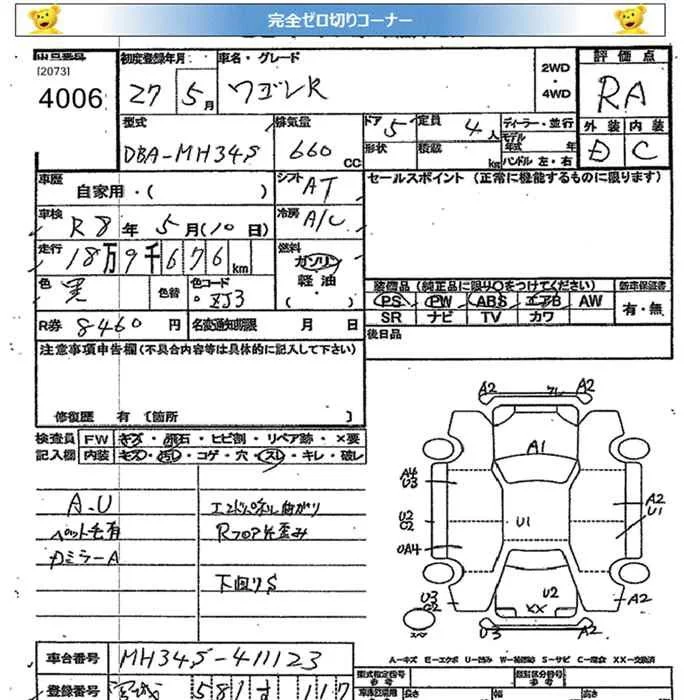 完全ゼロ切りコーナー
出品番号 初度登録年月 車名・グレード 2WD・4WD 評価点
[2073]
4006 27 5月 ワゴンR RA
型式 排気量 ドア 5 定員 4人 ディーラー・並行 外装 内装
DBA-MH34S 660cc 形状 積載 kg モデル年式 年 D C
ハンドル 左・右
車歴 自家用・( ) シフト AT セールスポイント (正常に機能するものに限ります)
車検 R8年 5月(10日) 冷房 A/C
走行 18万9千676km 燃料 ガソリン
軽油
( )
色 黒 色替 色コード ZJ3 装備品 (純正品に限り○をつけてください) 新車保証書
PS PW ABS エアB AW 有・無
R券 8460円 名変通知期限 月 日 SR ナビ TV カワ
注意事項申告欄(不具合内容等は具体的に記入して下さい) 後日品
修復歴 有 〔箇所 〕
検査員 FW キズ・飛石・ヒビ割・リペア跡・×要
記入欄 内装 キズ・汚レ・コゲ・穴・スレ・キレ・破レ
A.U エンドパネル曲がり
ペット毛有 Rフロア歪み
カミラーA
下回りS
A2 A2
A1
A4
U3
A2
U1
U2
C2
U1
UA4
U2
XX
U3
C2
A2
U3 A2
スペア
A-キズ E-エクボ U-凹ミ W-補修跡 S-サビ C-腐食 XX-交換済
車台番号 MH34S-411123
型式指定番号 参考 類別区分番号 参考
登録番号 宮城 581 す 117